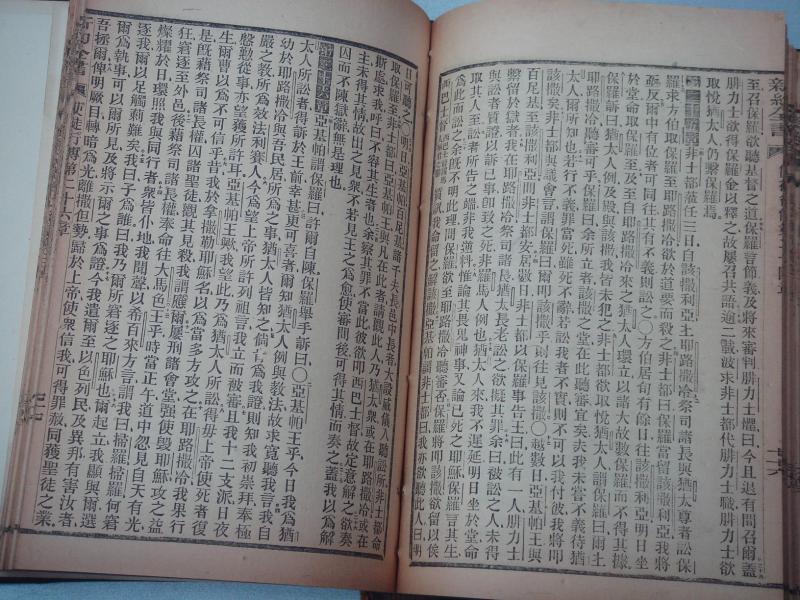 新約全書
至召保羅欲聽基督之道保羅言節義及將來審判腓力士懼曰今且退有間召爾蓋
腓力士欲得保羅金以釋之故屢召共語逾二載波求非士都代腓力士職腓力士欲
取悅猶太人仍繫保羅焉
非士都蒞任三日自該撒利亞上耶路撒冷祭司諸長與猶太尊者訟保
羅求方伯取保羅至耶路撒冷欲於道要而殺之非士都曰保羅當留該撒利亞我將
亟反爾中有位者可同往其有不義則訟之○方伯居旬有餘日往該撒利亞明日坐
於堂命取保羅至及至自耶路撒冷來之猶太人環立以諸大故數保羅而不得其據
保羅訴曰猶太人例及殿與該撒我皆未犯之非士都欲取悅猶太人謂保羅曰爾上
耶路撒冷聽審可乎保羅曰余所立者該撒之堂在此聽審宜矣夫我未嘗不義待猶
太人爾所知也若行不義罪當死雖死不辭若訟我者不實則不可以我付彼我將叩
該撒矣非士都與議會言謂保羅曰爾叩該撒乎則往見該撒○越數日亞基帕王與
百尼基至該撒利亞問非士都安居數日非士都以保羅事告王曰此有一人腓力士
繫留於獄者祭司諸長猶太長老訟之欲擬其罪余曰被訟之人未得
質證以訴已事卽致之死非羅馬人例也猶太人來我不遲延明日坐於堂命
取其人至訟者所告之端非我逆料惟論其畏見神事又論已死之耶穌保羅言其生
爲此而訟之余旣不明此理問保羅欲至耶路撒冷聽審否保羅將叩該撒欲留以俟
西巴士督訊我命留之該撒亞基帕謂非士都曰我亦欲聽此人曰明
日可聽之○明日亞基帕百尼基諸千夫長邑中長者大設威儀入聽訟所非士都命
取保羅至非士都曰亞基帕王與凡在此者請觀此人乃猶太衆或在耶路撒冷或在
斯處求我呼曰不容其生者也余察其罪不當死彼欲叩西巴士督故定意解之欲奏
主未得其情故出之見衆不若見王之爲愈使審問後可得其情而奏之蓋我以爲解
囚而不陳獄辭無是理也
亞基帕謂保羅曰許爾自陳保羅舉手訴曰○亞基帕王乎今日我爲猶
太人所訟者得訴於王前幸甚更可喜者爾知猶太人例與教法故求寬聽我言我自
幼於耶路撒冷與吾民居所爲猶太人皆知之倘肯爲我證則知我初崇拜奉極
嚴之教所爲效法利賽人今爲望上帝所許列祖言我立而被審且我十二支派日夜
慇懃從事亦望獲所許耳亞基帕王歟我望此乃爲猶太人所訟得毋上帝使死者復
生爾曹以爲不可信乎昔我於拿撒勒耶穌名以爲當多方攻之在耶路撒冷我果行
是旣藉祭司諸長權囚諸聖徒獄且觀其見殺我謂應爾屢刑諸會堂强使毀耶穌攻之益
狂窘逐至外邑後藉祭司諸長權奉命往大馬色王乎時當正午道中忽見自天有光
燦耀於日環照我與同行者衆皆仆地我聞聲以希百來方言謂我曰掃羅掃羅何窘
逐我爾以足觸刺難矣我曰子爲誰曰我乃爾所窘逐之耶穌也爾起立我顯與爾選
爾爲執事可以爾所見及將示爾之事爲證今我遣爾至以色列民及異邦有害汝者
吾拯爾俾明厥目轉暗爲光離撒但勢歸於上帝使衆信我可得罪赦同獲聖徒之業
使徒行傳第二十六章